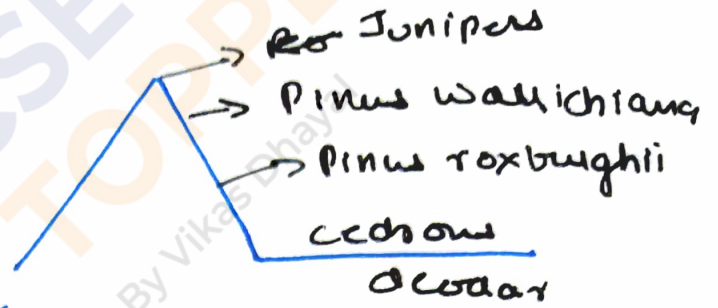 Junipers
Pinus wallichiana
Pinus roxburghii
cedrous
deodar
CSE
TOPPE
By Vikas Dhayal